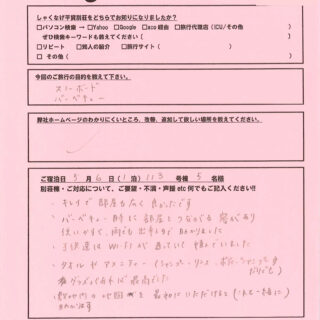 しゃくなげ平貸別荘をどちらでお知りになりましたか？
□パソコン検索 → □Yahoo □Google □aco 経由 □旅行代理店 (ICU/その他 )
ぜひ検索キーワードも教えてください( )
□リピート □知人の紹介 □旅行サイト( )
□その他( )
今回のご旅行の目的を教えて下さい。
スノーボード
バーベキュー
弊社ホームページのわかりにくいところ、改善、追加して欲しい場所を教えてください。
ご宿泊日 3月6日(1泊) 113号棟 5名様
別荘棟・ご対応について、ご要望・不満・声援 etc 何でもご記入ください!!
・キレイで部屋も広く良かったです
・バーベキュー時に部屋とつながる窓があり
使いやすく、雨でも出来るので助かりました
・子供達はWi-Fiが通っていて喜んでいました
・タオルやアメニティー(シャンプー・リンス・ボディシャンプーなど)
グッズがあれば最高でした
・敷地内の地図を最初にいただけると
助かります